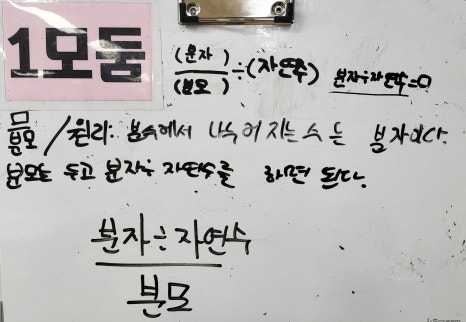 1모둠
(분자)
(분모)
÷(자연수)
분자÷자연수=□
□
분모 / 원리: 분수에서 나누어 지는 수 는 분자이다.
분모는 두고 분자÷자연수를 하면 된다.
분자÷자연수
분모